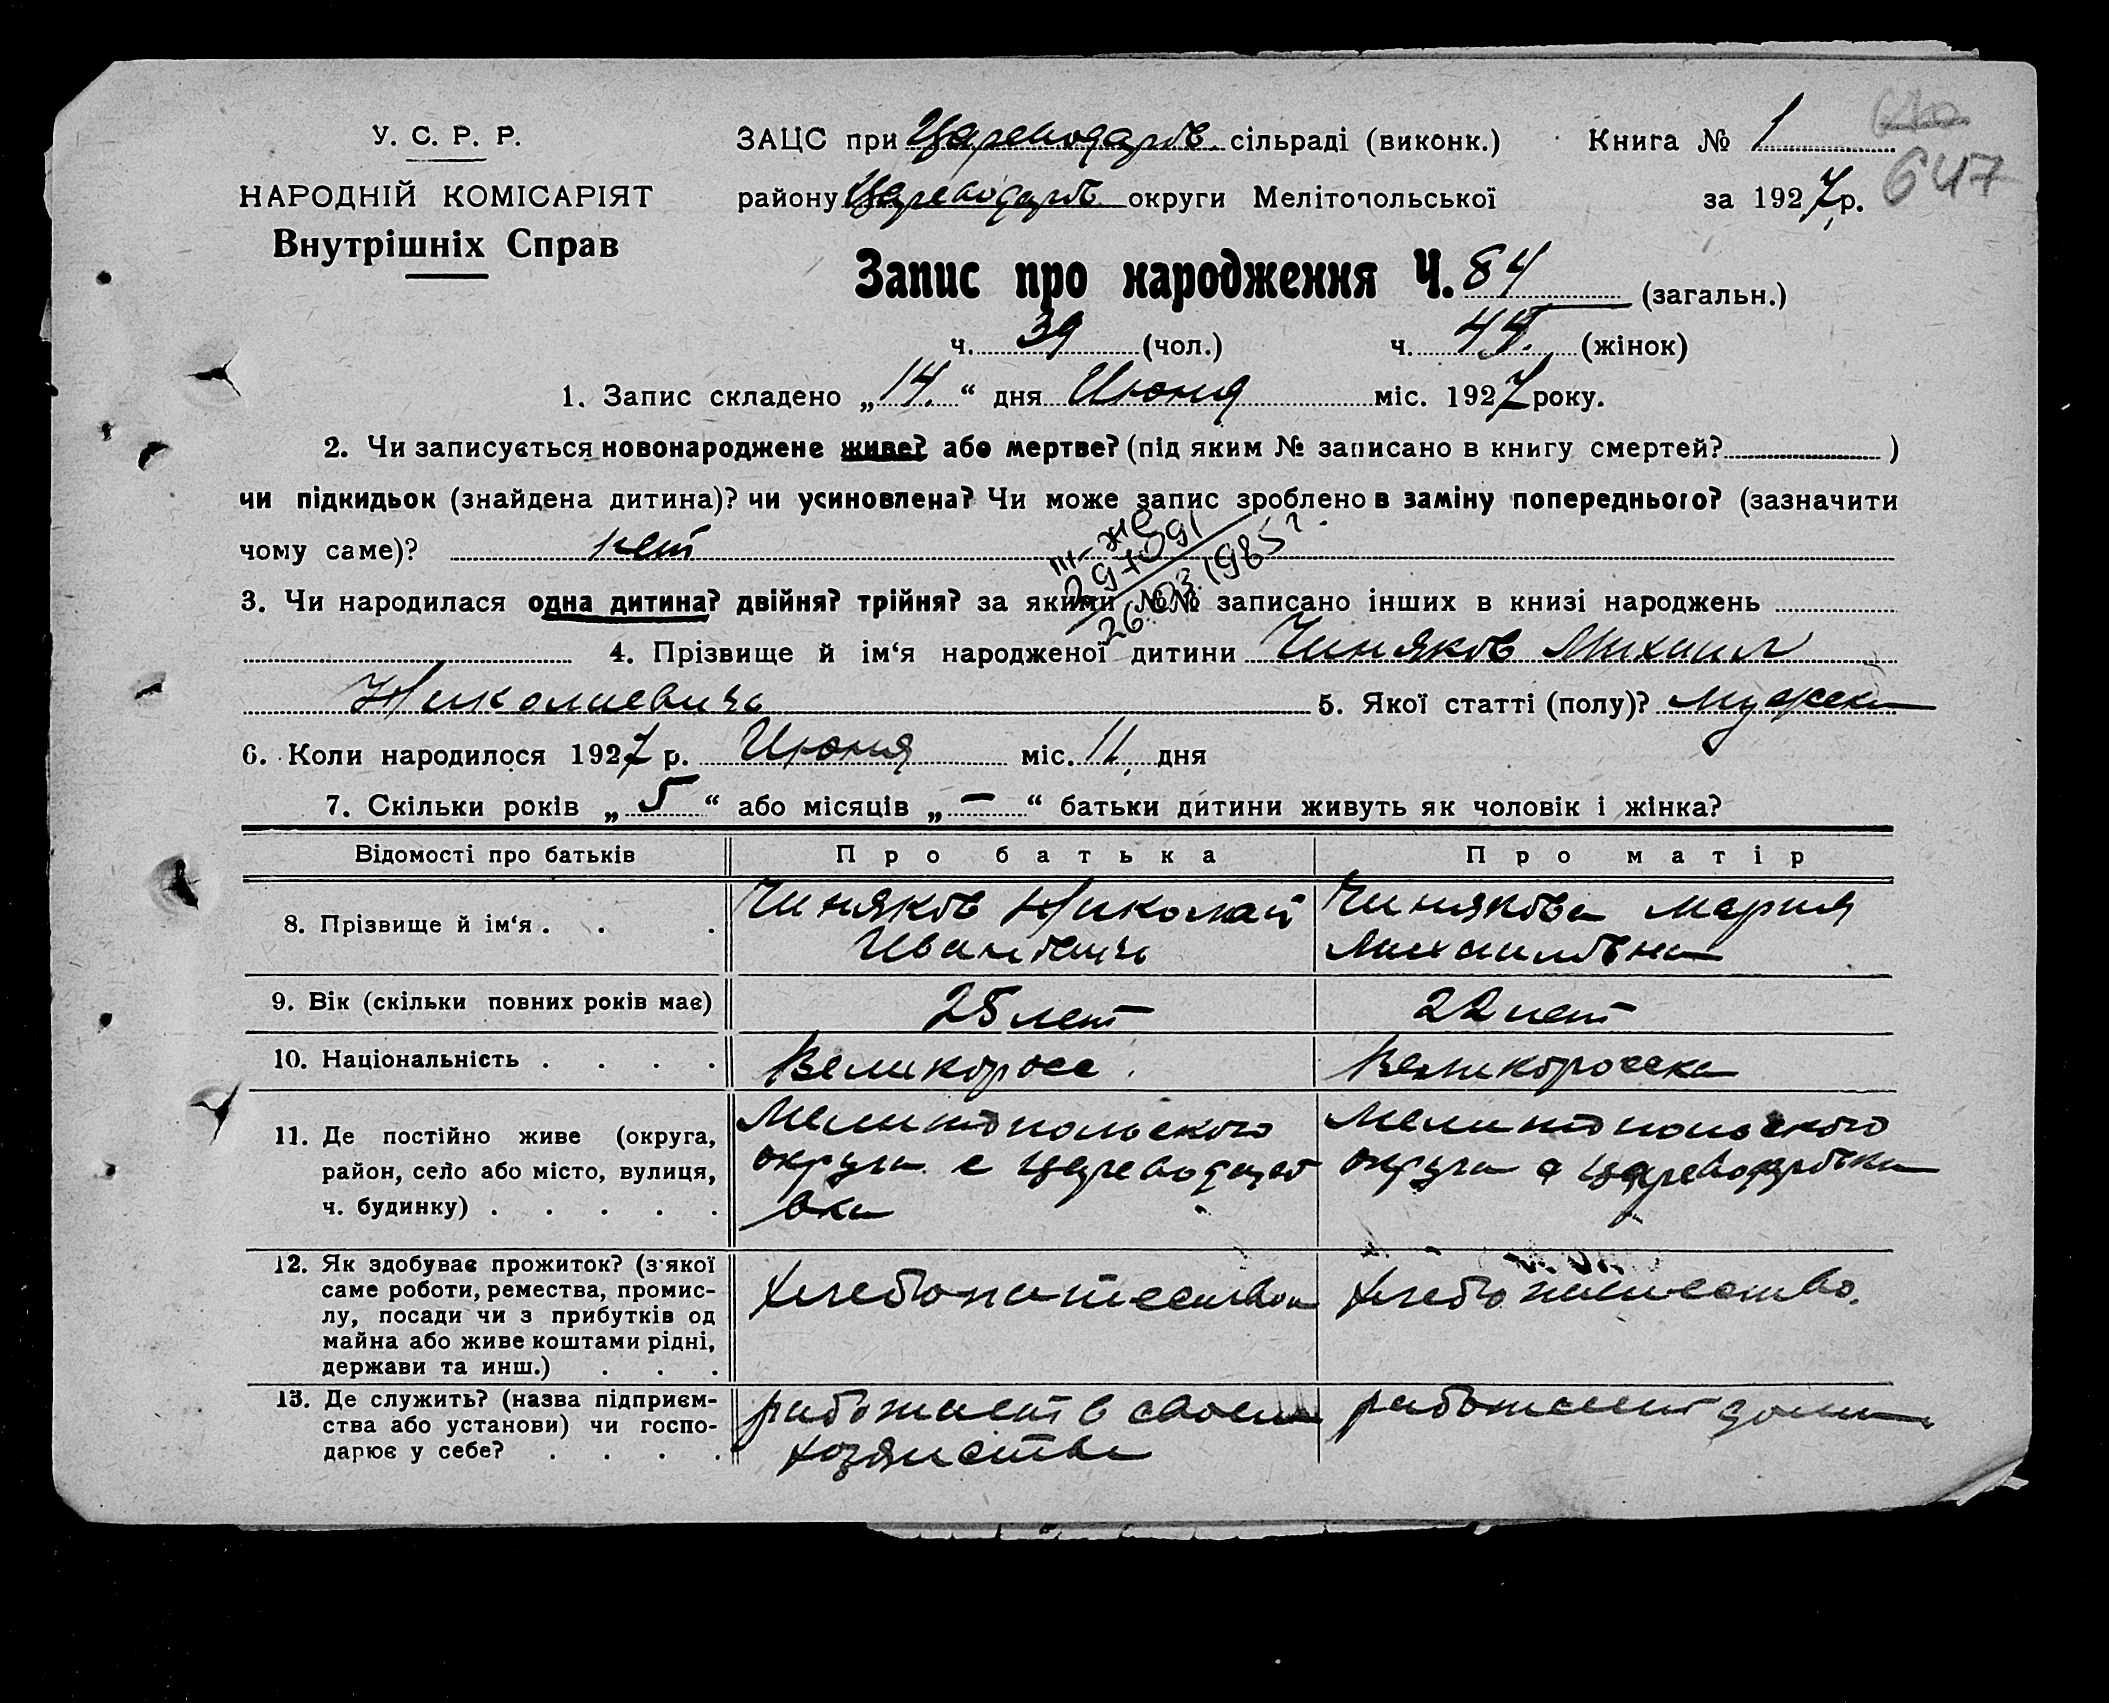 У. С. Р. Р.
НАРОДНІЙ КОМІСАРІЯТ
Внутрішніх Справ
ЗАЦС при Цареводаров. сільраді (виконк.) Книга № 1
647
району Цареводаров. округи Мелітопольської за 1927 р.
Запис про народження Ч. 84 (загальн.)
ч. 39 (чол.) ч. 45. (жінок)
1. Запис складено „14.“ дня Июня міс. 1927 року.
2. Чи записується новонароджене живе? або мертве? (під яким № записано в книгу смертей? )
чи підкидьок (знайдена дитина)? чи усиновлена? Чи може запис зроблено в заміну попереднього? (зазначити
чому саме)? нет
26.03.1985 г.
3. Чи народилася одна дитина? двійня? трійня? за якими №№ записано інших в книзі народжень
4. Прізвище й ім‘я народженої дитини Чиняков Михаил
Николаевичь 5. Якої статті (полу)? мужска
6. Коли народилося 1927 р. Июня міс. 11, дня
7. Скільки років „5“ або місяців „—“ батьки дитини живуть як чоловік і жінка?
Відомості про батьків Про батька Про матір
8. Прізвище й ім‘я . . . Чиняков Николай Чинякова Мария
Ивановичь Михаиловна
9. Вік (скільки повних років має) 25 лет 22 лет
10. Національність . . . . Великоросс. Великоросска
11. Де постійно живе (округа, Мелитопольского Мелитопольского
район, село або місто, вулиця, округа с Цареводаро округа с Цареводаровка
ч. будинку) . . . . . вка
12. Як здобуває прожиток? (з'якої
саме роботи, ремества, промис- хлебопашество хлебопашество.
лу, посади чи з прибутків од
майна або живе коштами рідні,
держави та инш.) . . .
13. Де служить? (назва підприєм- работает в своем работает дома
ства або установи) чи госпо-
дарює у себе? . . . . хозяистве